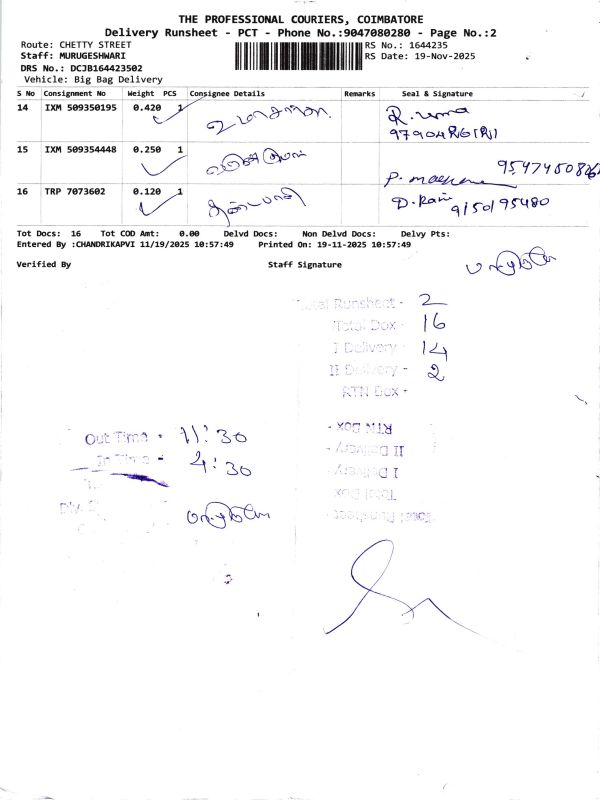 THE PROFESSIONAL COURIERS, COIMBATORE
Delivery Runsheet - PCT - Phone No.:9047080280 - Page No.:2
Route: CHETTY STREET
Staff: MURUGESHWARI
DRS No.: DCJB164423502
Vehicle: Big Bag Delivery
RS No.: 1644235
RS Date: 19-Nov-2025
S No Consignment No Weight PCS Consignee Details Remarks Seal & Signature
14 IXM 509350195 0.420 1 R. uma
15 IXM 509354448 0.250 1
16 TRP 7073602 0.120 1 D. Rani 9150195480
Tot Docs: 16 Tot COD Amt: 0.00 Delvd Docs: Non Delvd Docs: Delvy Pts:
Entered By :CHANDRIKAPVI 11/19/2025 10:57:49 Printed On: 19-11-2025 10:57:49
Verified By Staff Signature
Total Runsheet - 2
Total Dox - 16
I Delivery - 14
II Delivery - 2
RTN Box -
RTN Box -
II Delivery -
I Delivery -
Total Dox -
Total Runsheet -
Out Time - 11:30
In Time - 4:30